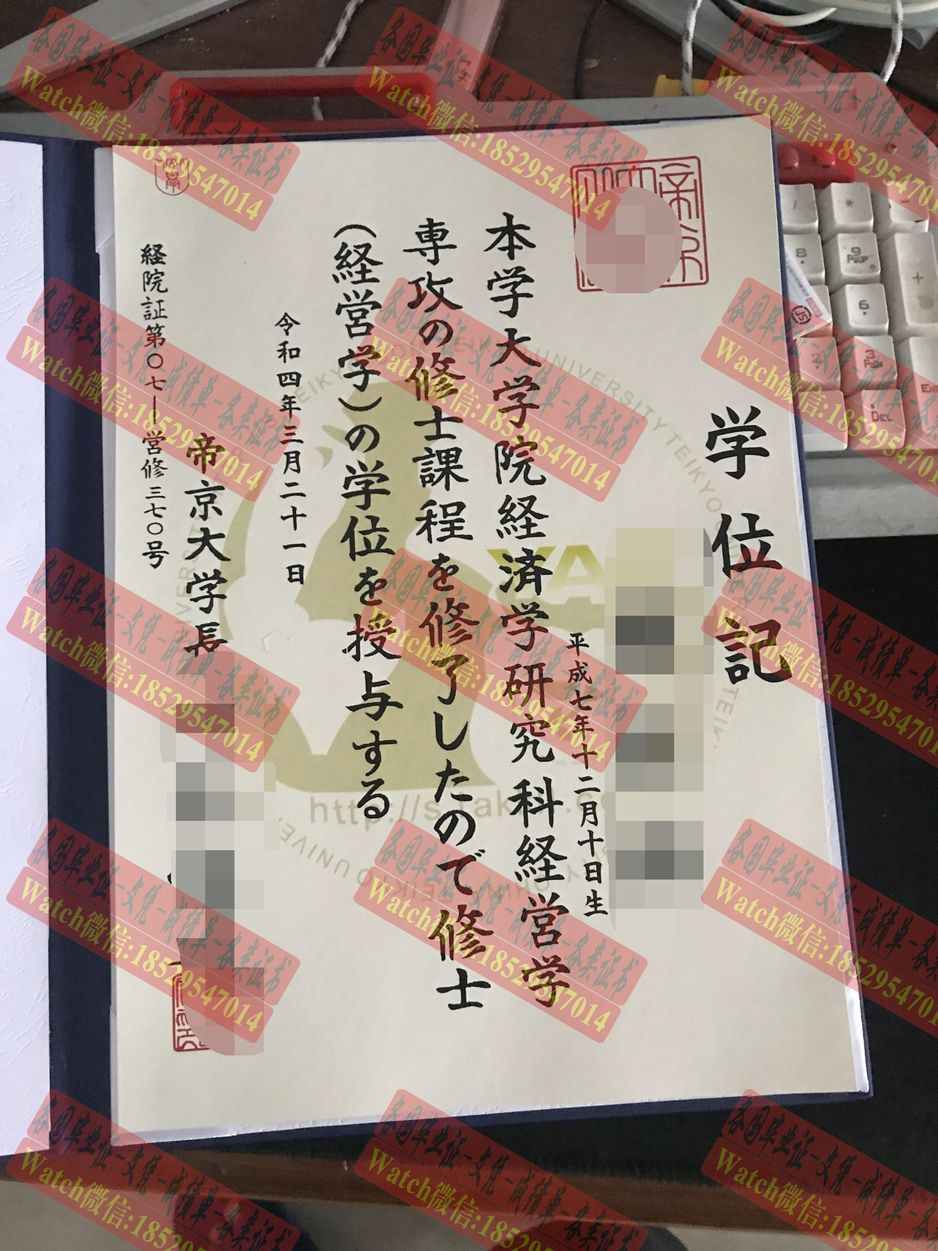 学位記
平成七年十二月十日生
本学大学院経済学研究科経営学
専攻の修士課程を修了したので修士
(経営学)の学位を授与する
令和四年三月二十一日
帝京大学長
経院証第〇七一営修三七〇号
各国毕业证-文凭-成绩单-各类证书
Watch微信:18529547014